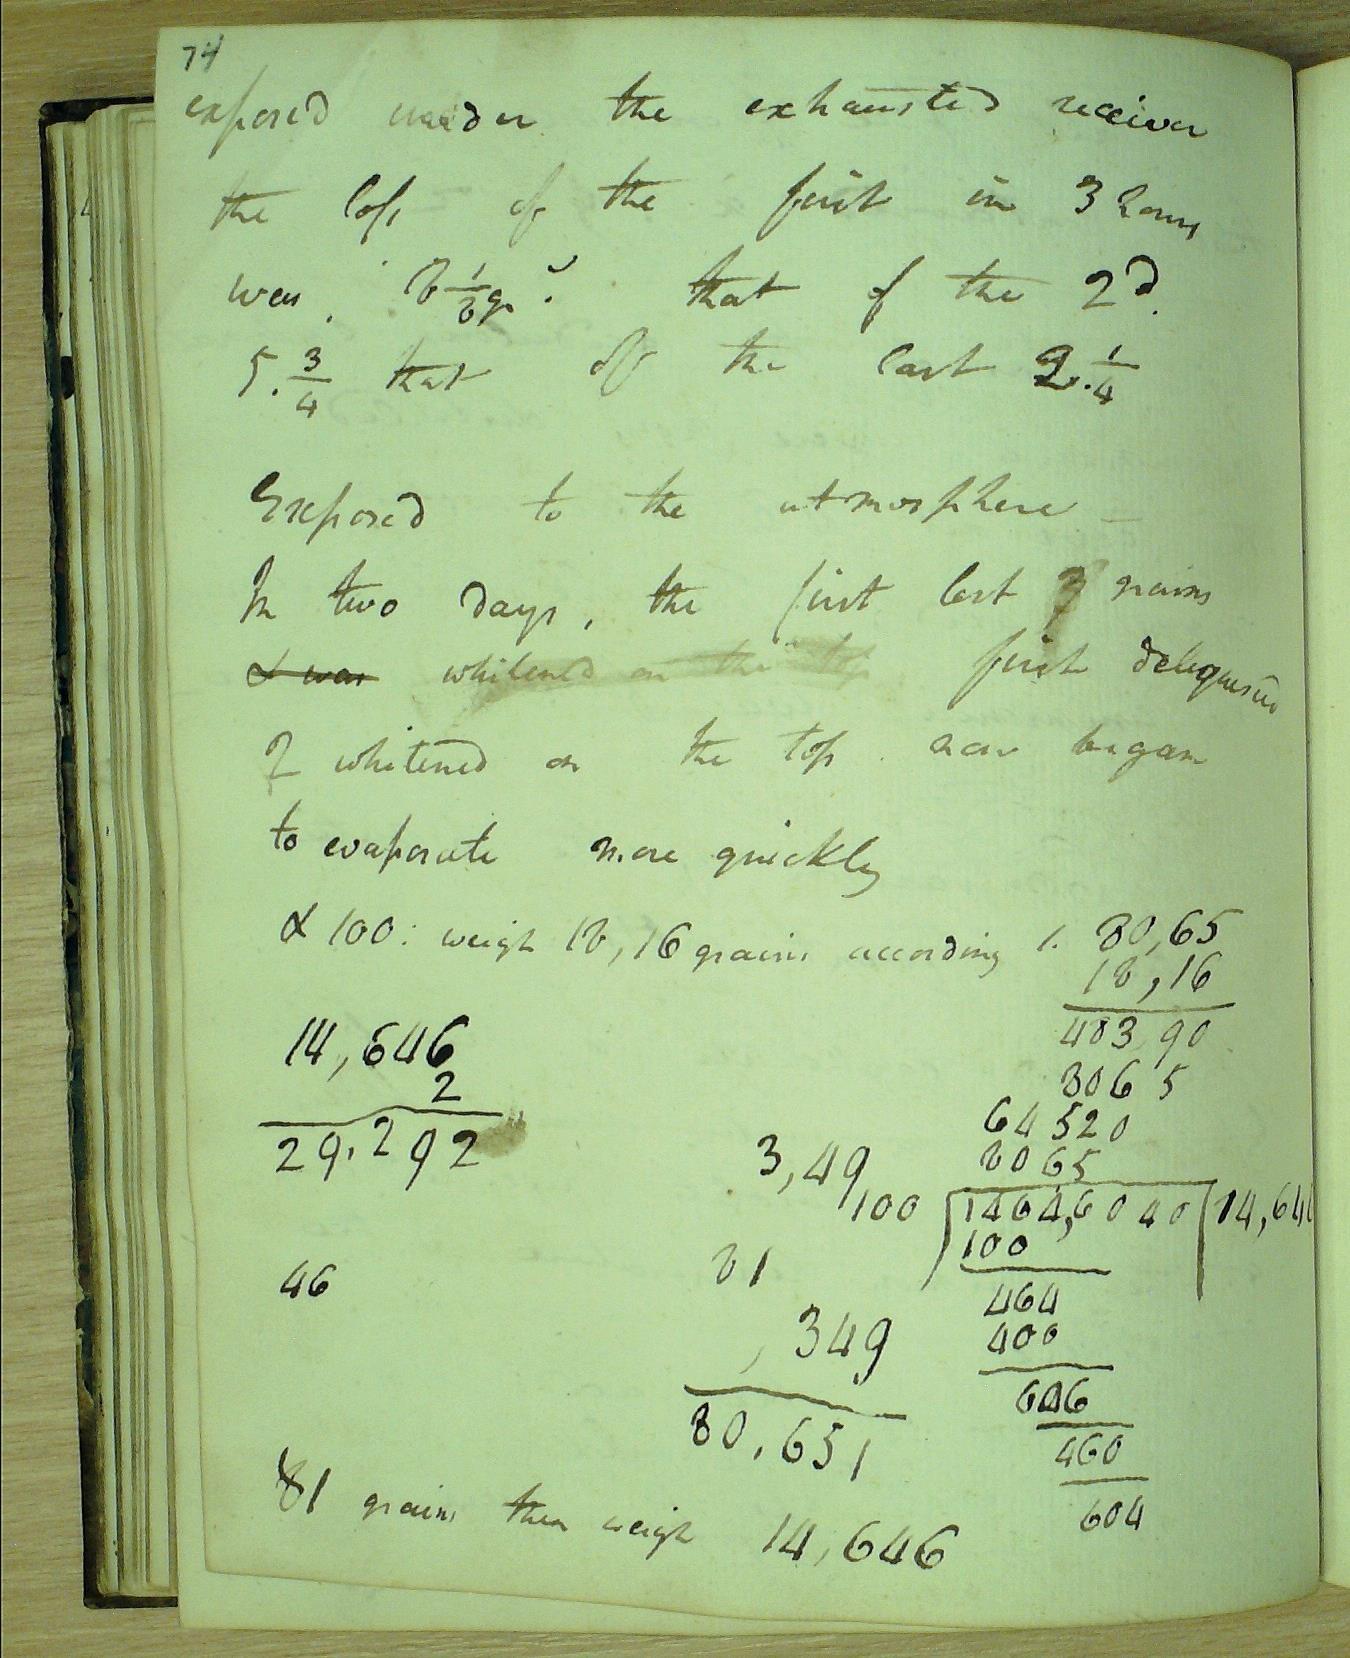 74
exposed under the exhausted receiver
the loss of the first in 3 hours
was 8 1/2 grs. that of the 2d.
5. 3/4 that of the last 2. 1/4
Exposed to the atmosphere –
In two days, the first lost 3 grains
& was whitened on the top first deliquesced
& whitened on the top now began
to evaporate more quickly
& 100: weigh 18,16 grains according 1. 80,65
18,16
483,90
8065
64520
8065
100 1464,6040 14,646
100
464
400
646
460
604
14,646
2
29.292
46
3,49
81
,349
80,651
81 grains then weigh 14,646